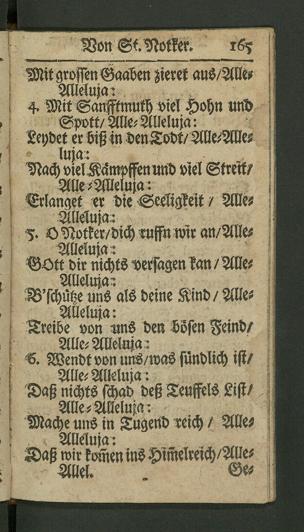 Von St. Notker. 165
Mit grossen Gaaben zieret aus/ Alle-
Alleluja:
4. Mit Sanfftmuth viel Hohn und
Spott/ Alle-Alleluja:
Leydet er biß in den Todt/ Alle-Alle-
luja:
Nach viel Kämpffen und viel Streit/
Alle-Alleluja:
Erlanget er die Seeligkeit / Alle-
Alleluja:
5. O Notker/dich ruffn wir an/Alle-
Alleluja:
GOtt dir nichts versagen kan / Alle-
Alleluja:
B'schütze uns als deine Kind / Alle-
Alleluja:
Treibe von uns den bösen Feind/
Alle-Alleluja:
6. Wendt von uns/was sündlich ist/
Alle-Alleluja:
Daß nichts schad deß Teuffels List/
Alle-Alleluja:
Mache uns in Tugend reich / Alle-
Alleluja:
Daß wir kom̃en ins Him̃elreich/Alle-
Allel. Ge-